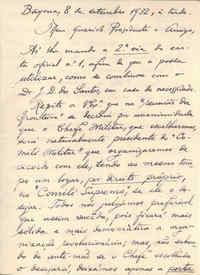 Bayona, 8 de setembro 1922, à tarde.
Meu querido Presidente e Amigo,
Ahi lhe mando a 2.ª via da car-
ta oficial n.º 1, afim de que a possa
utilizar, como se combinou com o
Dr. J. D. dos Santos, em caso de necessidade.
Repito a V. que na "reunião da
fronteira" se decidiu por unanimidade
que o Chefe Militar, que escolhermos,
será naturalmente presidente do "Co-
mité Militar" que organizaremos de
acordo com ele, tendo ao mesmo tem-
po um logar, por direito próprio,
no "Comité Supremo", se ele o de-
sejar. Todos nós preferimos
que assim suceda, pois ficará mais
solida e mais democratica a or-
ganização revolucionária; mas, não saben-
do de ante-mão se o Chefe escolhido
o desejará, deixamos apenas a porta